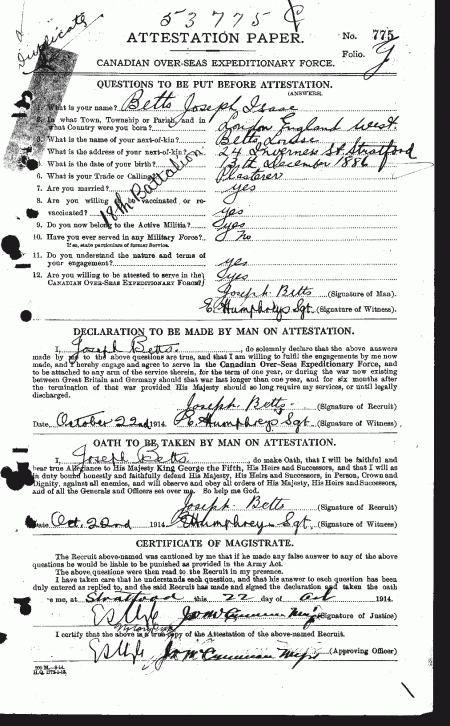 53775
Duplicate
ATTESTATION PAPER.
No. 775
Folio.
CANADIAN OVER-SEAS EXPEDITIONARY FORCE.
QUESTIONS TO BE PUT BEFORE ATTESTATION.
(ANSWERS)
What is your name? Betts Joseph Isaac
In what Town, Township or Parish, and in
what Country were you born? London England West.
What is the name of your next-of-kin? Betts Louise
4. What is the address of your next-of-kin? 24 Inverness St. Stratford
5. What is the date of your birth? 13th December 1886
6. What is your Trade or Calling? Plasterer
7. Are you married? yes
8. Are you willing to be vaccinated or re-
vaccinated? yes
9. Do you now belong to the Active Militia? yes
10. Have you ever served in any Military Force? No
If so, state particulars of former Service.
11. Do you understand the nature and terms of
your engagement? yes
12. Are you willing to be attested to serve in the
CANADIAN OVER-SEAS EXPEDITIONARY FORCE? yes
18th Battalion
Joseph Betts (Signature of Man).
E Humphreys Sgt. (Signature of Witness).
DECLARATION TO BE MADE BY MAN ON ATTESTATION.
I, Joseph Betts, do solemnly declare that the above answers
made by me to the above questions are true, and that I am willing to fulfil the engagements by me now
made, and I hereby engage and agree to serve in the Canadian Over-Seas Expeditionary Force, and
to be attached to any arm of the service therein, for the term of one year, or during the war now existing
between Great Britain and Germany should that war last longer than one year, and for six months after
the termination of that war provided His Majesty should so long require my services, or until legally
discharged.
Joseph Betts (Signature of Recruit)
Date October 22nd 1914. E Humphreys Sgt (Signature of Witness)
OATH TO BE TAKEN BY MAN ON ATTESTATION.
I, Joseph Betts, do make Oath, that I will be faithful and
bear true Allegiance to His Majesty King George the Fifth, His Heirs and Successors, and that I will as
in duty bound honestly and faithfully defend His Majesty, His Heirs and Successors, in Person, Crown and
Dignity, against all enemies, and will observe and obey all orders of His Majesty, His Heirs and Successors,
and of all the Generals and Officers set over me. So help me God.
Joseph Betts (Signature of Recruit)
Date Oct. 22nd 1914 E Humphreys Sgt. (Signature of Witness)
CERTIFICATE OF MAGISTRATE.
The Recruit above-named was cautioned by me that if he made any false answer to any of the above
questions he would be liable to be punished as provided in the Army Act.
The above questions were then read to the Recruit in my presence.
I have taken care that he understands each question, and that his answer to each question has been
duly entered as replied to, and the said Recruit has made and signed the declaration and taken the oath
before me, at Stratford this 22 day of Oct 1914.
(Signature of Justice)
I certify that the above is a true copy of the Attestation of the above-named Recruit.
(Approving Officer)